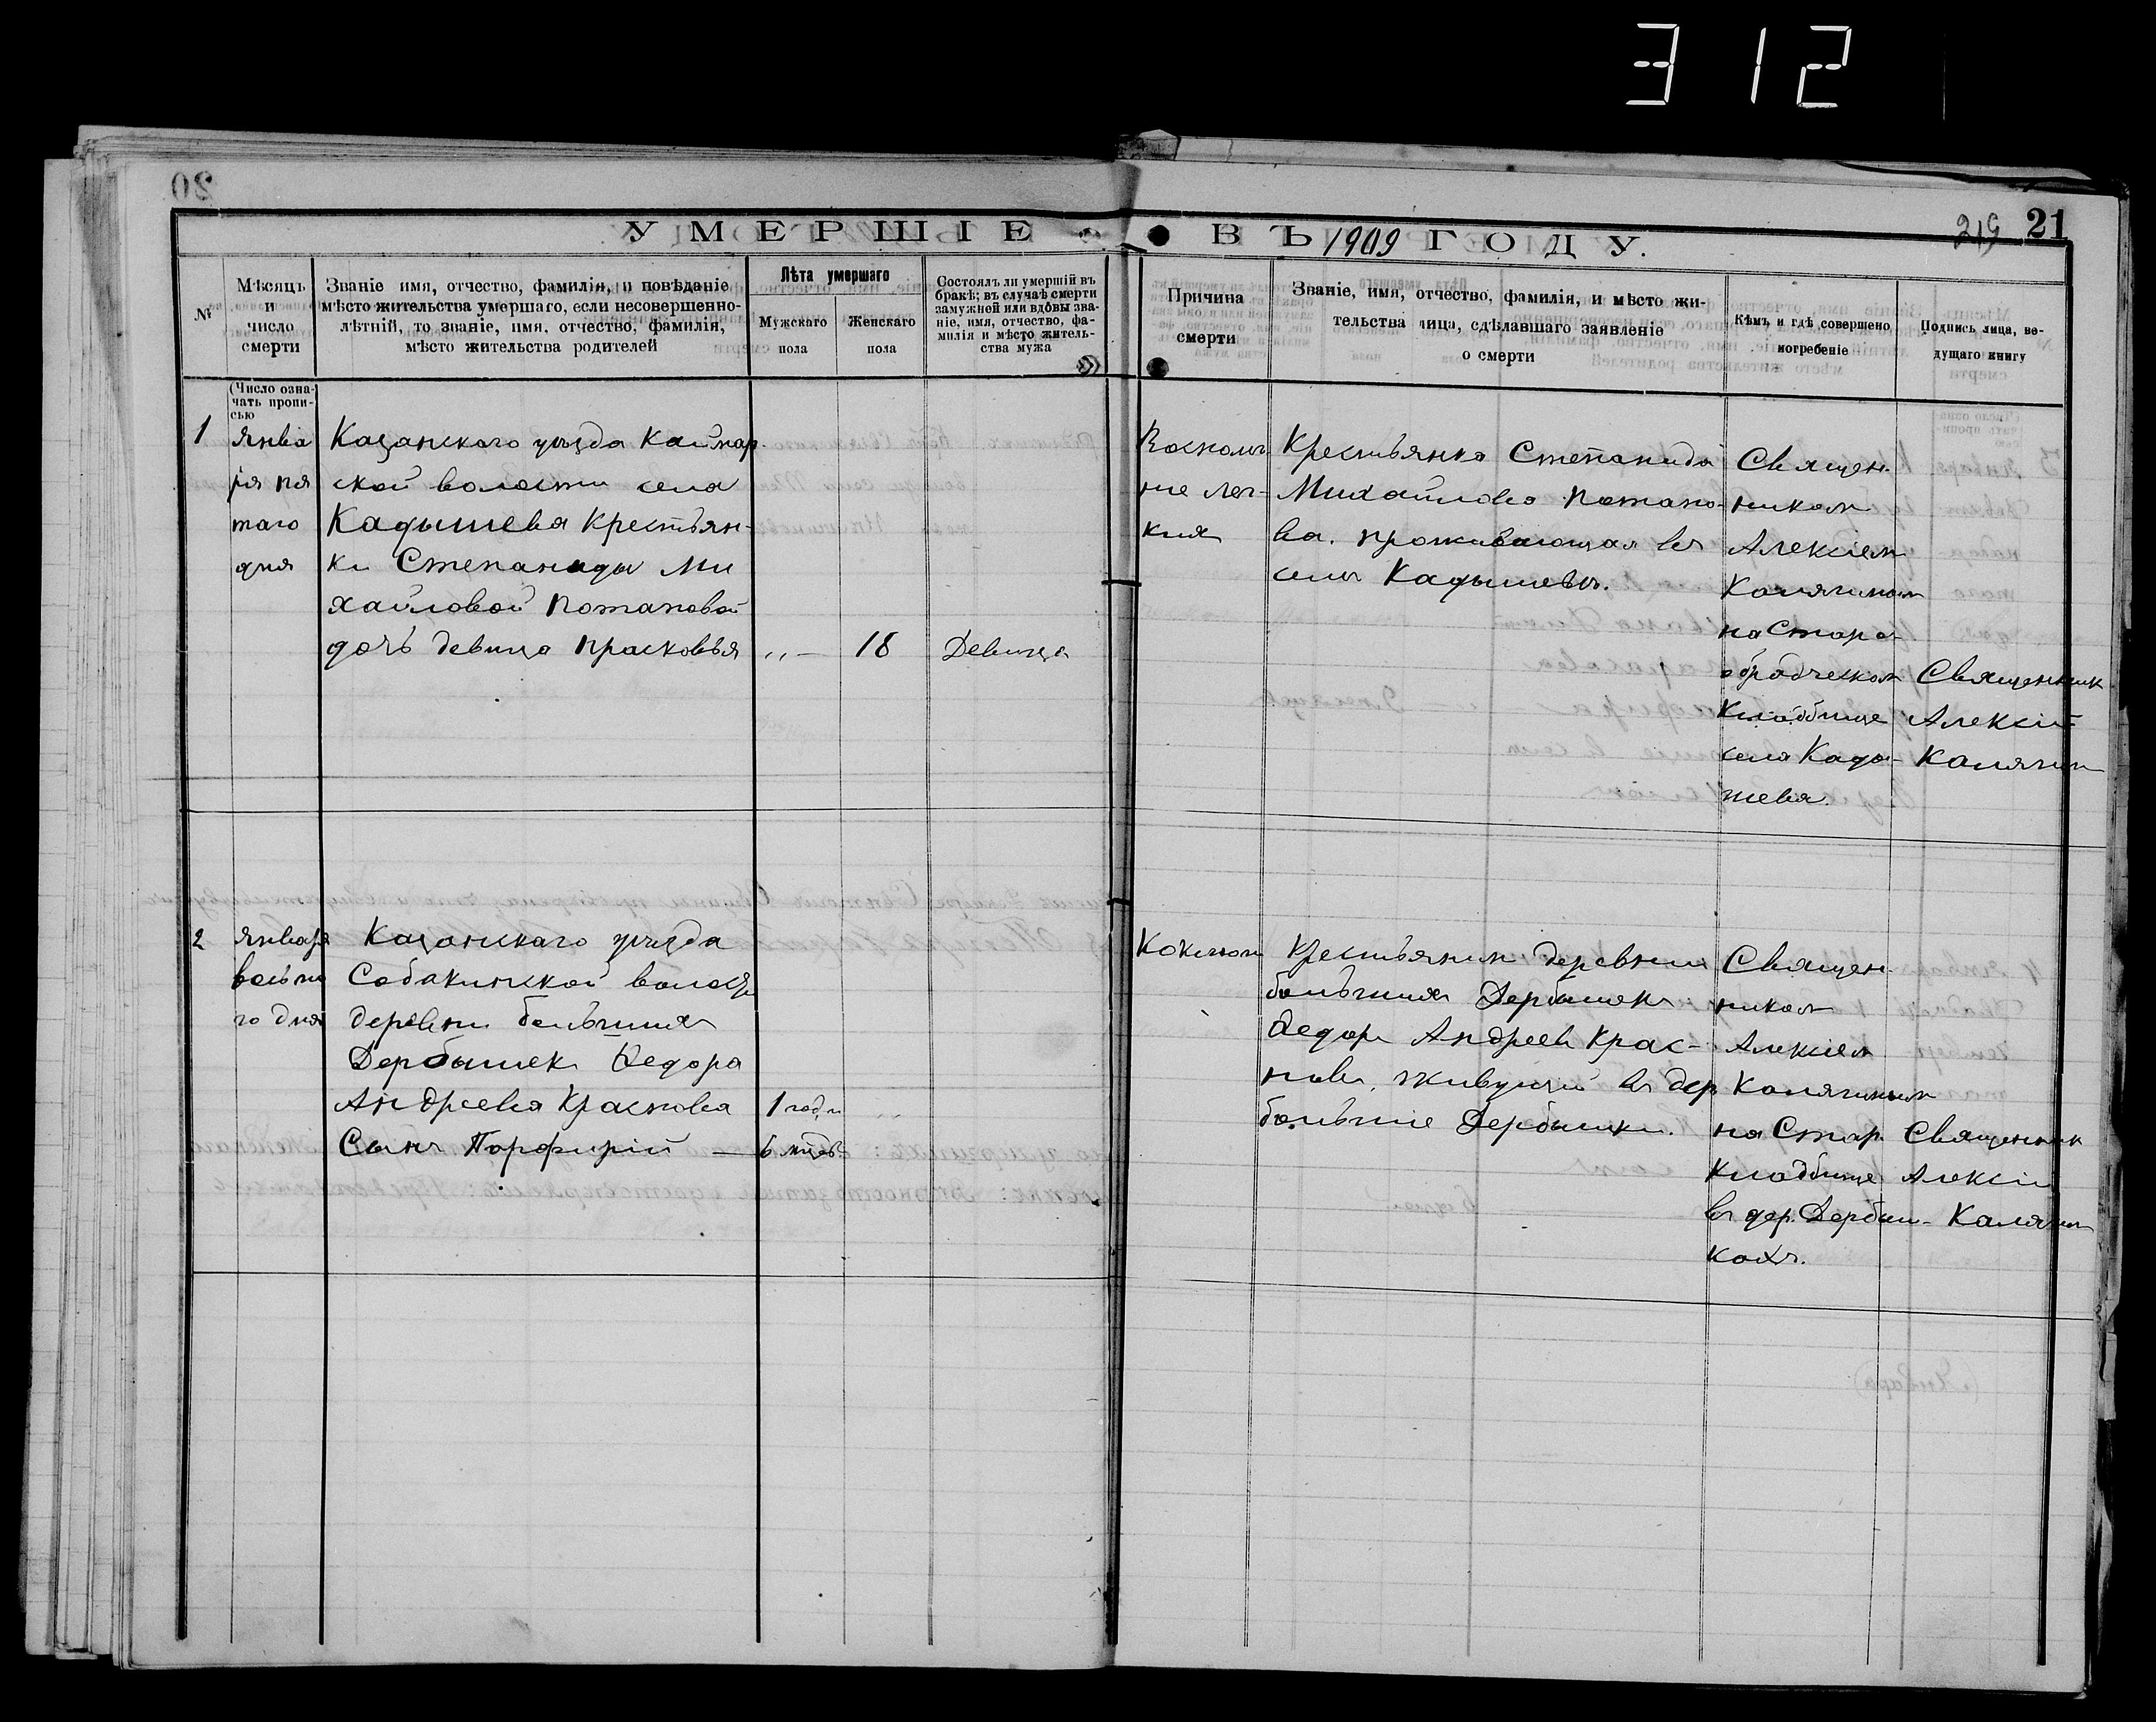 312
20
УМЕРШІЕ
ВЪ 1909 ГОДУ.
219 21
№
Мѣсяцъ
и
число
смерти
Званіе имя, отчество, фамилія, и повѣданіе
мѣсто жительства умершаго, если несовершенно-
лѣтній, то званіе, имя, отчество, фамилія,
мѣсто жительства родителей
Лѣта умершаго
Мужскаго
пола
Женскаго
пола
Состоялъ ли умершій въ
бракѣ; въ случаѣ смерти
замужней или вдовы зва-
ніе, имя, отчество, фа-
милія и мѣсто житель-
ства мужа
Причина
смерти
Званіе, имя, отчество, фамилія, и мѣсто жи-
тельства лица, сдѣлавшаго заявленіе
о смерти
Кѣмъ и гдѣ совершено
погребеніе
Подпись лица, ве-
дущаго книгу
(Число озна-
чать пропи-
сью
1
Янва
ря пя
таго
дня
Казанскаго уѣзда Каймар
ской волости села
Кадышева Крестьян-
ки Степаниды Ми
хайловой Потаповой
дочь девица Прасковья
„ —
18
Девица
Воспале
ние лег-
кия
Крестьянка Степанида
Михайлова Потапо-
ва. проживающая въ
селе Кадышевъ.
Священ
никомъ
Алексіем
Калягиным
на Старо-
обрядческом
Кладбище
села Кады-
шева.
Священник
Алексій
Калягин
2
Января
восьма
го дня
Казанскаго уѣзда
Собакинской волости
деревни большихъ
Дербышек Федора
Андреева Краснова
Сынъ Порфирій —
1 год. и
6 мцовъ
Коклюш
Крестьянин деревни
большихъ Дербышекъ
Федоръ Андреевъ Крас-
новъ, живущій въ дер
большіе Дербышки.
Священ
ником
Алексіем
Калягиным
на Стар.
Кладбище
въ дер. Дербыш-
кахъ.
Священник
Алексій
Калягин